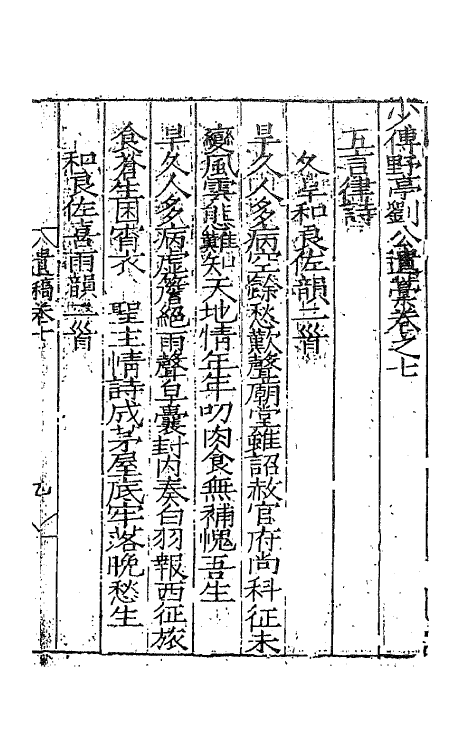 少傅野亭劉公遺藁卷之七
五言律詩
久旱和良佐韻二首
旱久人多病空餘愁歎聲廟堂雖詔赦官府尚科征未
變風雲態難知天地情年年叨肉食無補愧吾生
旱久人多病虛簷絕雨聲皁囊封內奏白羽報西征旅
食蒼生困宵衣 聖主情詩成茅屋底牢落晩愁生
和良佐喜雨韻二首
遺稿卷七